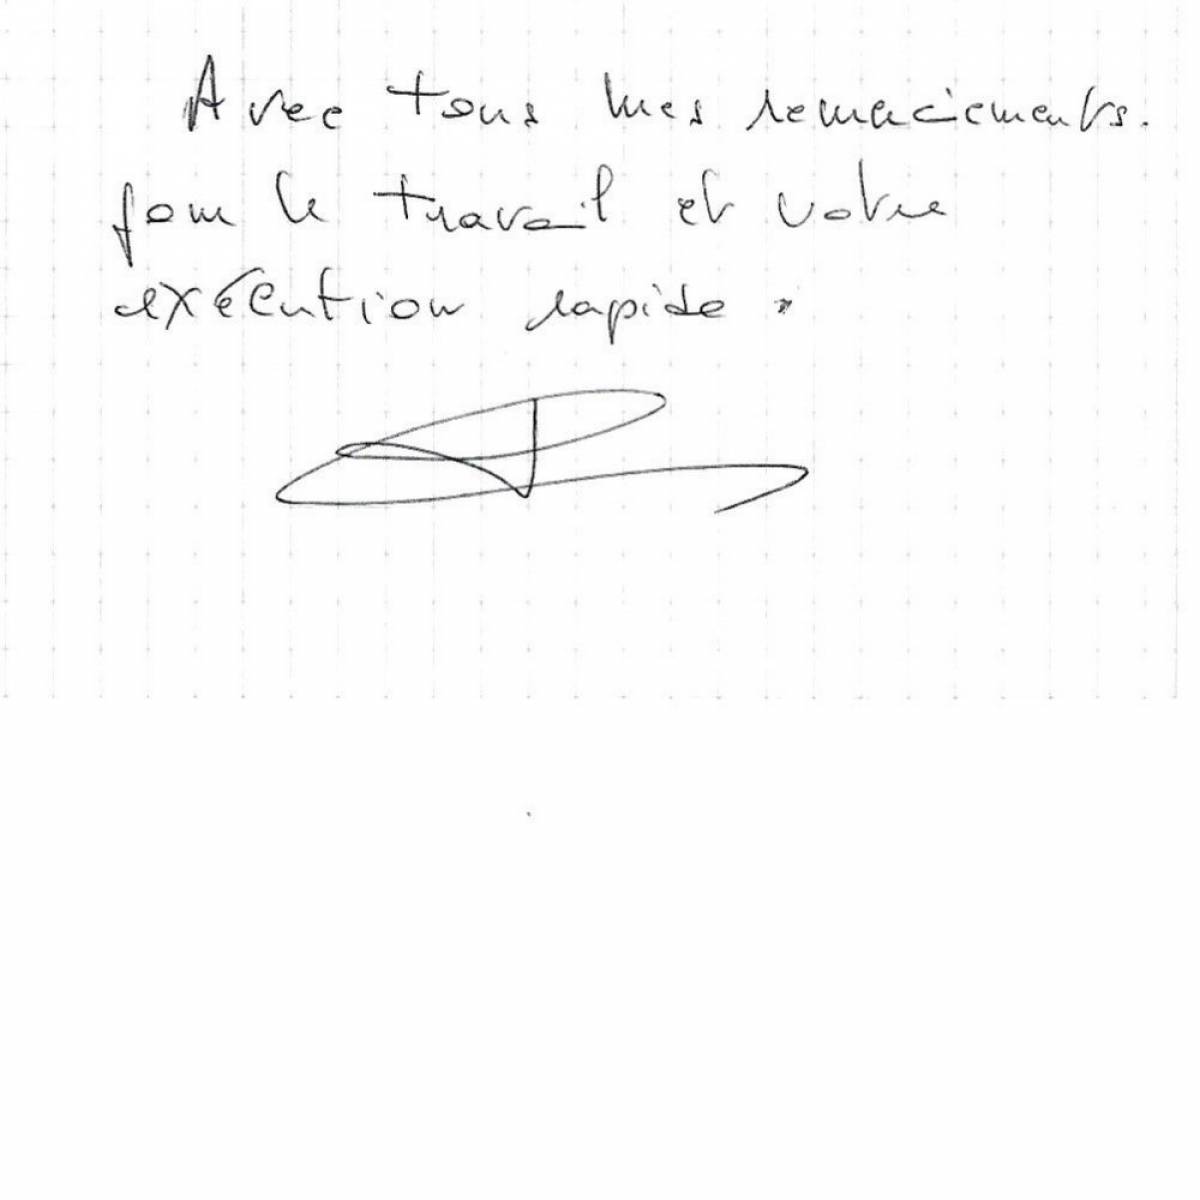 Avec tous mes remerciements.
pour le travail et votre
exécution rapide.